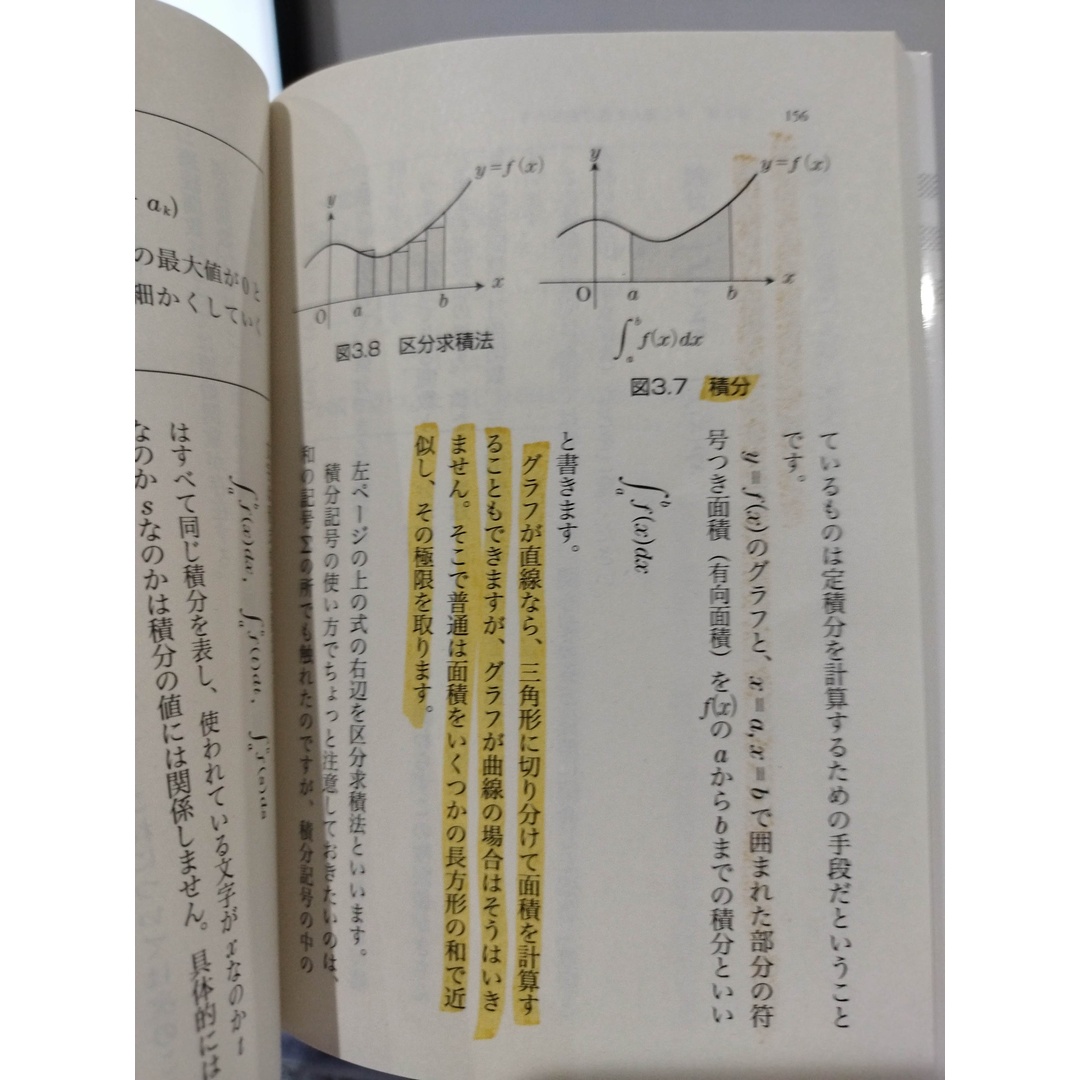 156
y=f(x)
y
O
a
b
x
∫_a^b f(x)dx
図3.7 積分
y=f(x)
y
O
a
b
x
図3.8 区分求積法
ているものは定積分を計算するための手段だということ
です。
y=f(x)のグラフと、x=a, x=bで囲まれた部分の符
号つき面積(有向面積)をf(x)のaからbまでの積分といい
∫_a^b f(x)dx
と書きます。
グラフが直線なら、三角形に切り分けて面積を計算す
ることもできますが、グラフが曲線の場合はそうはいき
ません。そこで普通は面積をいくつかの長方形の和で近
似し、その極限を取ります。
左ページの上の式の右辺を区分求積法といいます。
積分記号の使い方でちょっと注意しておきたいのは、
和の記号Σの所でも触れたのですが、積分記号の中の
a_k)
の最大値が0と
細かくしていく
∫_a^b f(x)dx,
はすべて同じ積分を表し、使われている文字がxなのかt
なのかsなのかは積分の値には関係しません。具体的には